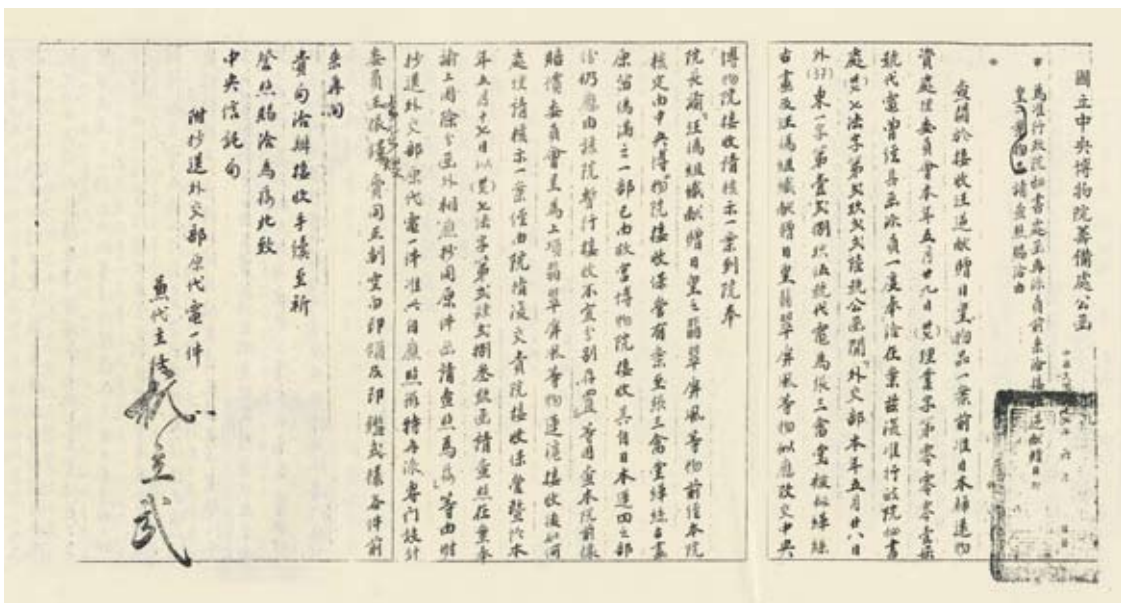 國立中央博物院籌備處公函
為准行政院秘書處函再派員前來洽接汪逆獻贈日
皇物品請查照賜洽由
查關於接收汪逆獻贈日皇物品一案前准日本歸還物
資處理委員會本年五月廿九日理業字第零零零壹柒
號代電曾經具函派員一度奉洽在案茲復准行政院秘書
處七法字第
公函開外交部本年五月廿八日
外(37)東一字第
代電為張三畬堂被劫緙絲
古畫及汪偽組織獻贈日皇翡翠屏風等物似應改交中央
博物院接收請核示一案到院奉
院長諭汪偽組織獻贈日皇之翡翠屏風等物前經本院
核定由中央博物院接收保管有案至張三畬堂緙絲古畫
原留偽滿之一部已由故宮博物院接收其自日本運回之部
份仍應由該院暫行接收不宜分別存置等因查本院前據
賠償委員會呈為上項翡翠屏風等物運滬接收後如何
處理請核示一案經由院指復交貴院接收保管暨於本
年五月十七日以七法字第
函請查照在案奉
諭上因除分函外相應抄同原件函請查照為荷等由附
抄送外交部原代電一件准此自應照辦特再派專門設計
委員王振鐸
齎同函副空白印領及印鑑式樣各件前
來再向
貴局洽辦接收手續至祈
查照賜洽為荷此致
中央信託局
附抄送外交部原代電一件
兼代主任杭立武